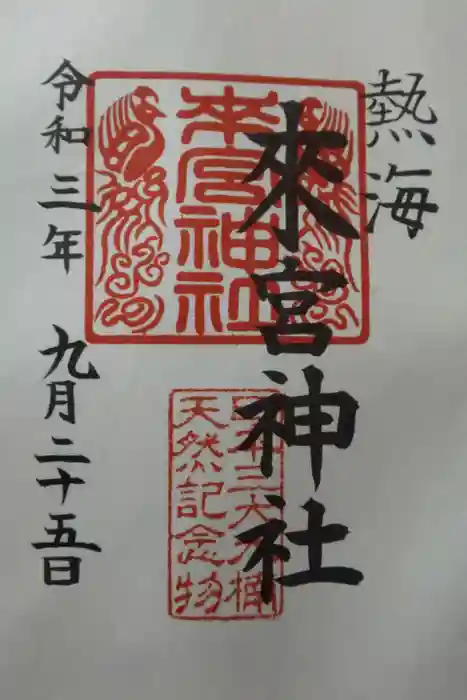 熱海
來宮神社
来宮神社
日本三大大楠
天然記念物
令和三年 九月二十五日